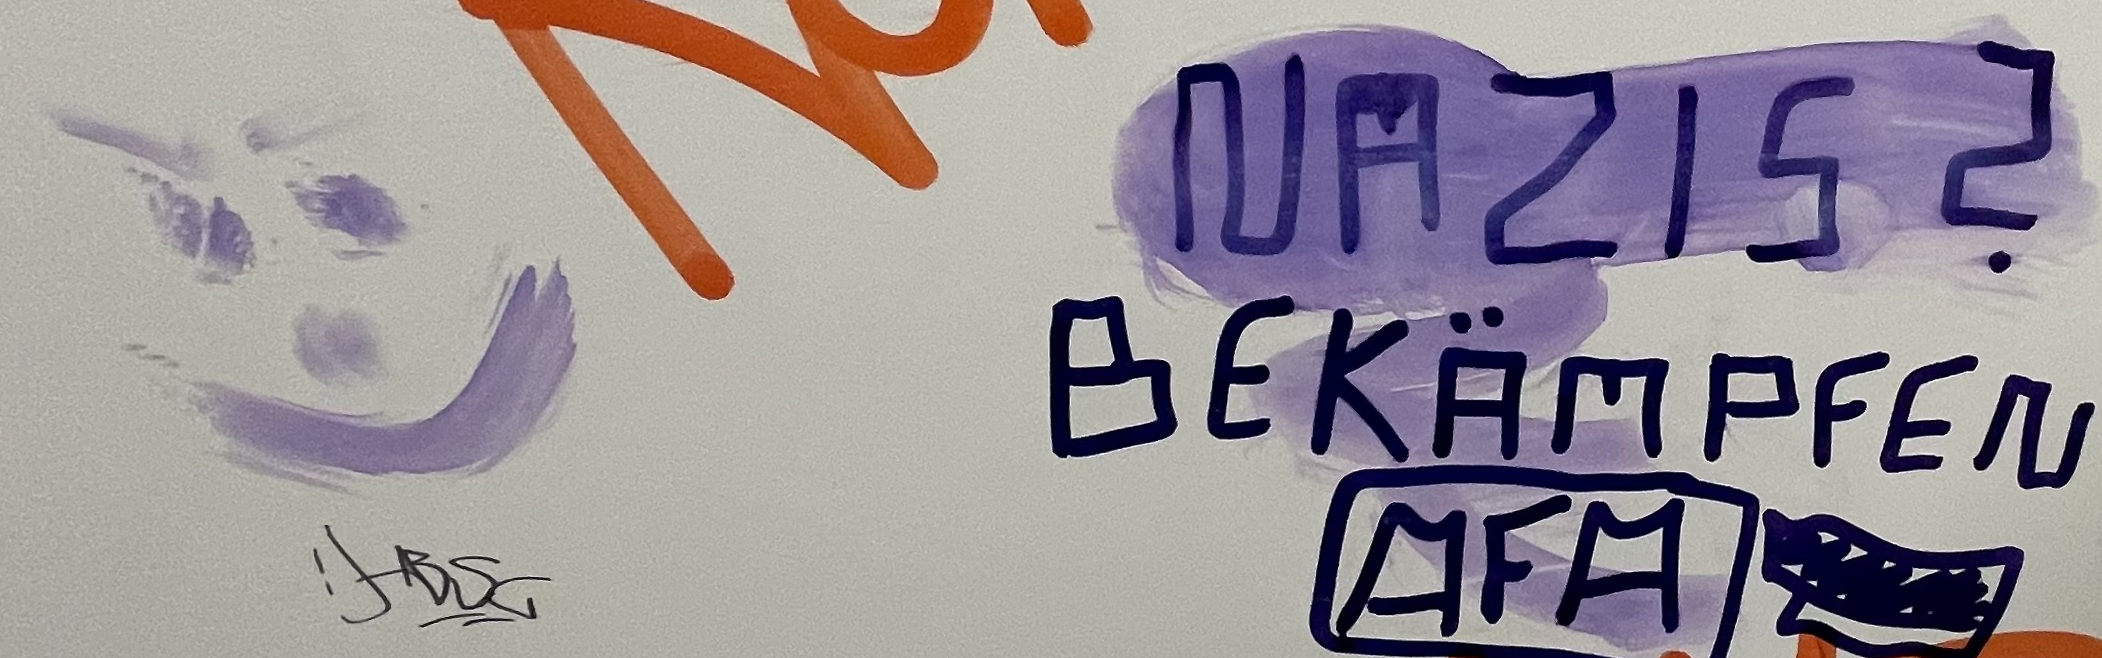 NAZIS?
BEKÄMPFEN
AFA